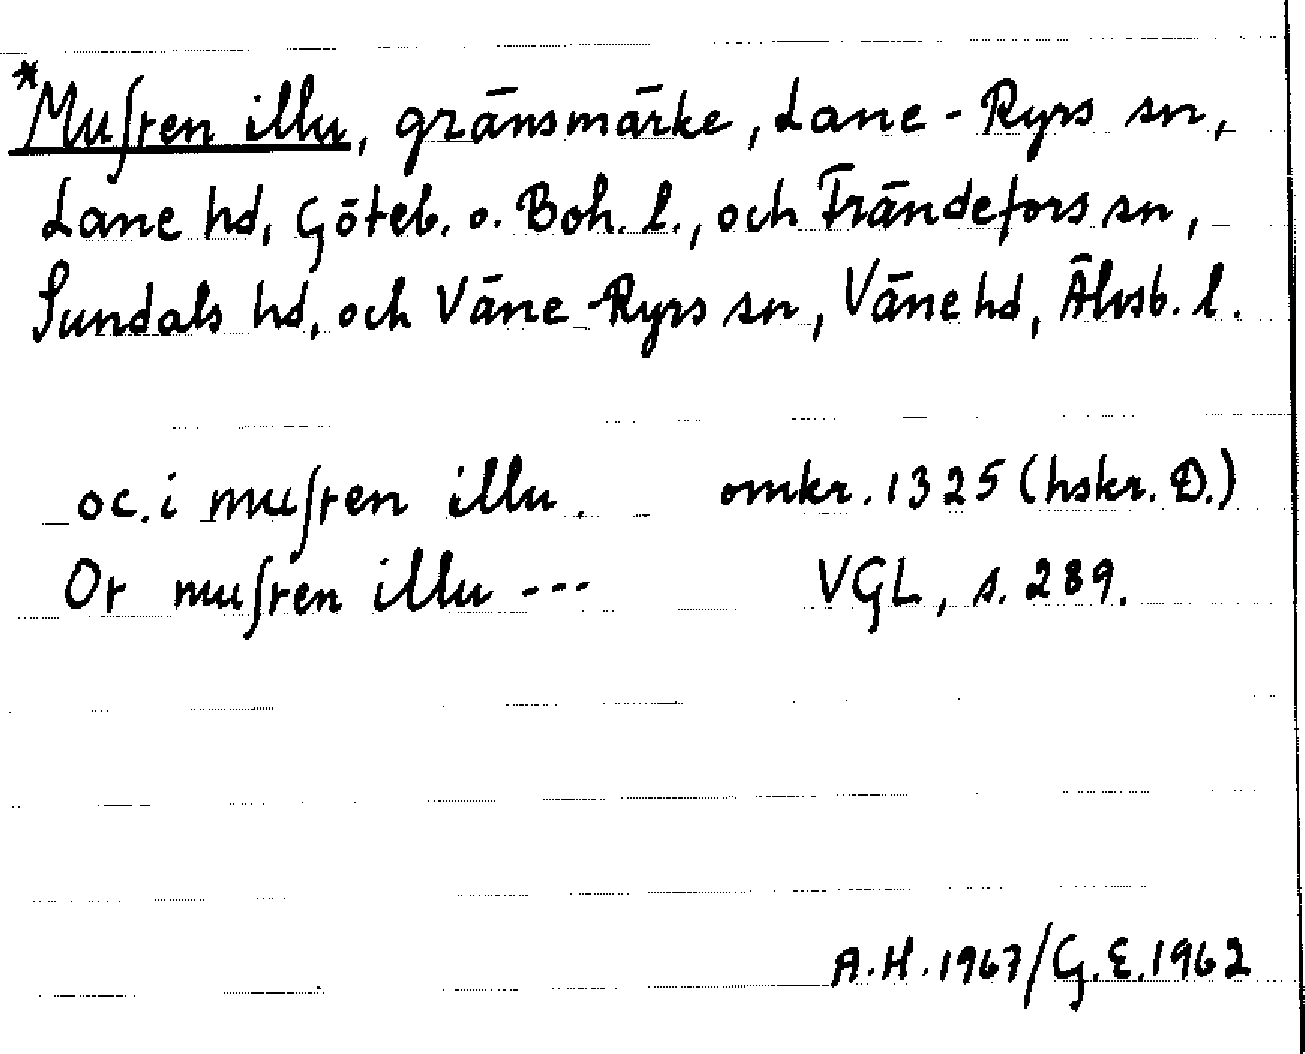 *Muſten illu, gränsmärke, Lane-Ryrs sn,
Lane hd, Göteb. o. Boh. l., och Frändefors sn,
Sundals hd, och Väne-Ryrs sn, Väne hd, Älvsb. l.
oc. i muſten illu. omkr. 1325 (hskr. D.)
Or muſten illu --- VGL, s. 289.
A.H. 1967/G.E. 1962